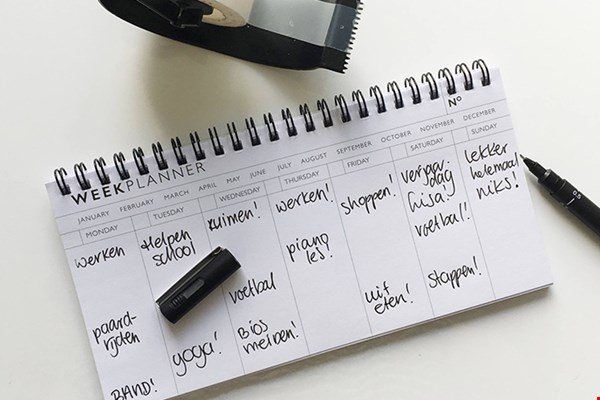 Nº
WEEKPLANNER
JANUARY FEBRUARY MARCH APRIL MAY JUNE JULY AUGUST SEPTEMBER OCTOBER NOVEMBER DECEMBER
MONDAY TUESDAY WEDNESDAY THURSDAY FRIDAY SATURDAY SUNDAY
werken
paard-
rijden
BAND!
Helpen
school
yoga!
ruimen!
voetbal
BIOS
meiden!
werken!
piano
les!
shoppen!
uit
eten!
verjaar-
dag
Lisa!
voetbal!
stappen!
lekker
helemaal
niks!
0.5